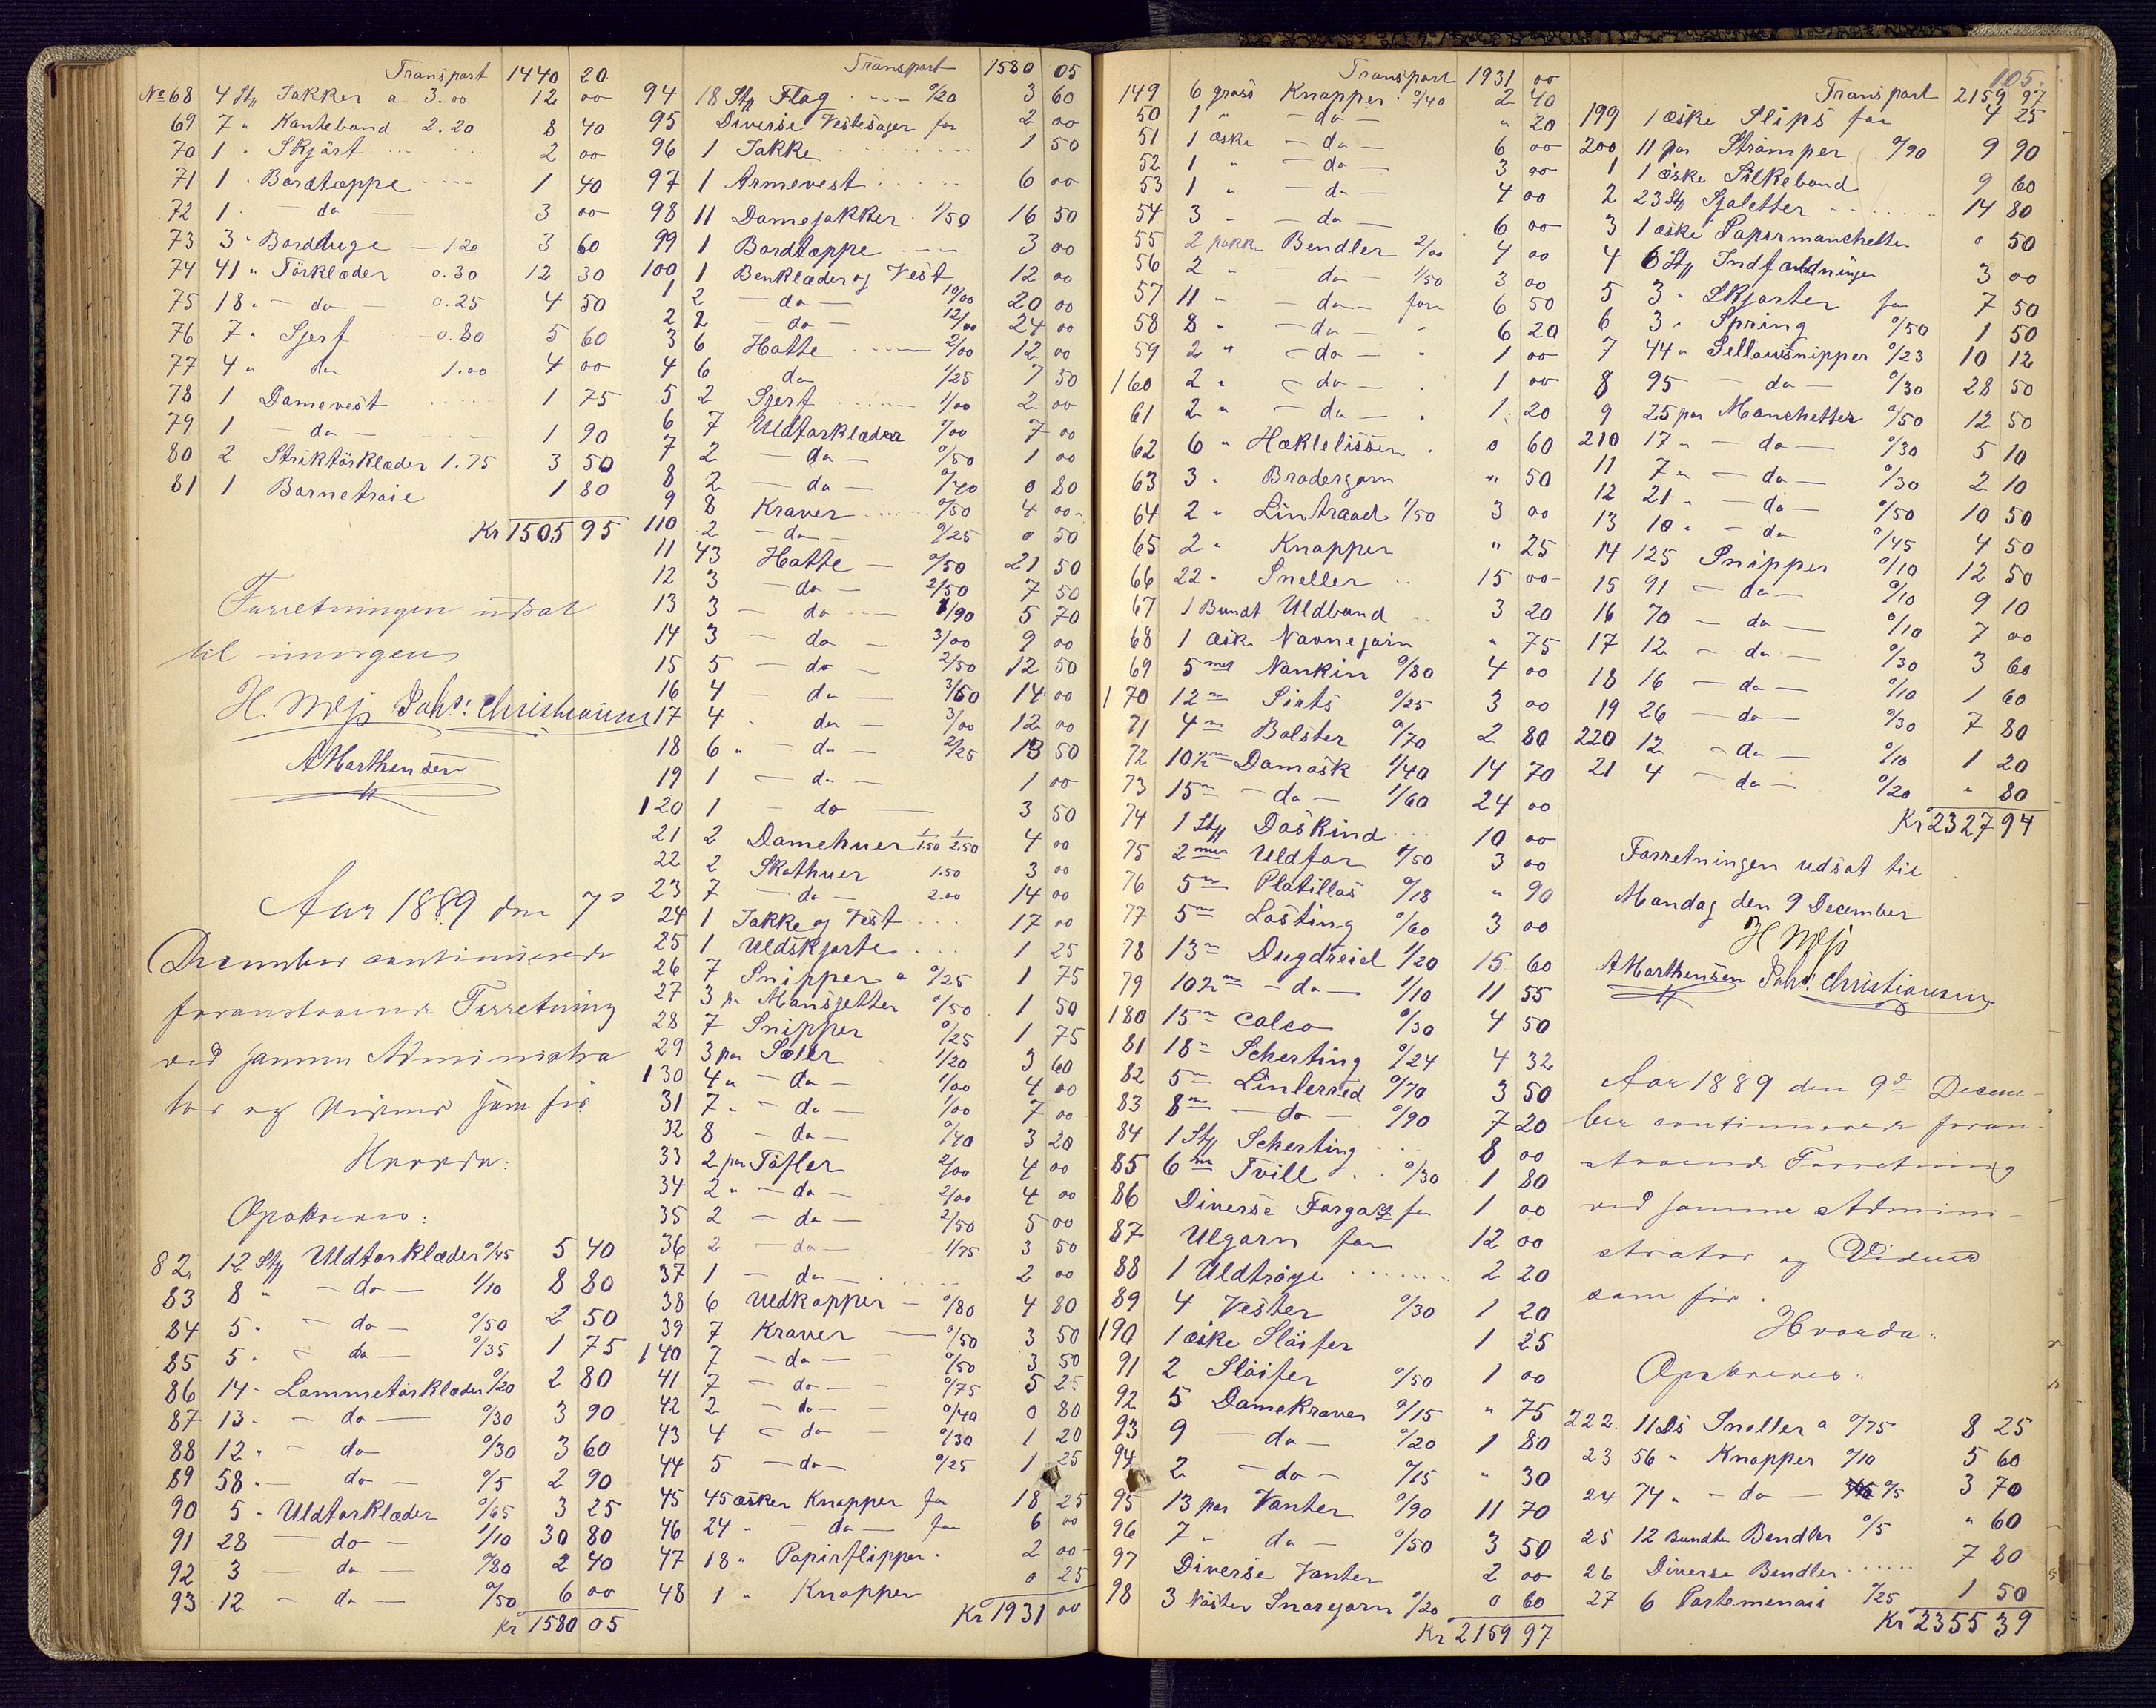 Transport 1440 20
No 68 4 Stk Jakker a 3.00 12 00
69 7 " Kanteband 2.20 8 40
70 1 " Skjört 2 00
71 1 " Bordtæppe 1 40
72 1 " — do — 3 00
73 3 " Bordduge — 1.20 3 60
74 41 " Törklæder 0.30 12 30
75 18 " — do — 0.25 4 50
76 7 " Sjerf — 0.80 5 60
77 4 " do 1.00 4 00
78 1 Damevest 1 75
79 1 — do — 1 90
80 2 Striktörklæder 1.75 3 50
81 1 Barnetraie 1 80
Kr 1505 95
Forretningen udsat
til imorgen
H. Joh's: Christiansen
AMarthensen
Aar 1889 den 7de
December continuerede
foranstaaende Forretning
ved samme Administra
tor og Vidner som før
Hvorda:
Opskreves:
82 12 Stk Uldtørklæder 0/45 5 40
83 8 " — do — 1/10 8 80
84 5 " — do — 0/50 2 50
85 5 " — do — 0/35 1 75
86 14 " Lommetørklæder 0/20 2 80
87 13 " — do — 0/30 3 90
88 12 " — do 0/30 3 60
89 58 " — do — 0/5 2 90
90 5 " Uldtørklæder 0/65 3 25
91 28 — do — 1/10 30 80
92 3 — do — 0/80 2 40
93 12 — do — 0/50 6 00
Kr 1580 05
Transport 1580 05
94 18 Stk Flag 0/20 3 60
95 Diverse Vestesager for 2 00
96 1 Jakke 1 50
97 1 Armevest 6 00
98 11 Damejakker 1/50 16 50
99 1 Bordtæppe 3 00
100 1 Benklæder og Vest 12 00
1 2 — do — 10/00 20 00
2 2 — do — 12/00 24 00
3 6 Hatte 2/00 12 00
4 6 do 1/25 7 50
5 2 Sjerf 1/00 2 00
6 7 Uldtørklæder 1/00 7 00
7 2 — do — 0/50 1 00
8 2 — do — 0/40 0 80
9 8 Kraver 0/50 4 00
110 2 — do — 0/25 0 50
11 43 Hatte — 0/50 21 50
12 3 — do — 2/50 7 50
13 3 — do — 1/90 5 70
14 3 — do — 3/00 9 00
15 5 — do — 2/50 12 50
16 4 — do — 3/50 14 00
17 4 " do — 3/00 12 00
18 6 " — do — 2/25 13 50
19 1 — do — 1 00
120 1 — do — 3 50
21 2 Damehuer 1/1.50 1/2.50 4 00
22 2 Skathuer 1.50 3 00
23 7 — do — 2.00 14 00
24 1 Jakke og Vest 17 00
25 1 Uldskjorte 1 25
26 7 Snipper a 0/25 1 75
27 3 pr Mansjetter 0/50 1 50
28 7 Snipper 0/25 1 75
29 3 par Sæler 1/20 3 60
130 4 " — do — 1/00 4 00
31 7 " — do — 1/00 7 00
32 8 — do — 0/40 3 20
33 2 par Töfler 2/00 4 00
34 2 " — do — 2/00 4 00
35 2 — do — 2/50 5 00
36 2 — do — 1/75 3 50
37 1 — do — 2 00
38 6 Uldkapper — 0/80 4 80
39 7 Kraver — 0/50 3 50
140 7 — do — 0/50 3 50
41 7 — do — 0/75 5 25
42 2 — do — 0/40 0 80
43 4 — do — 0/30 1 20
44 5 — do — 0/25 1 25
45 45 æsker Knapper for 18 25
46 24 " — do — for 6 00
47 18 " Papirflipper 2 00
48 1 " Knapper 0 25
Kr 1931 00
Transport 1931 00
149 6 gross Knapper 0/40 2 40
50 1 " — do — " 20
51 1 æske — do — 6 00
52 1 " — do — 3 00
53 1 " — do — 4 00
54 3 " — do — 6 00
55 2 pakk Bendler 2/00 4 00
56 2 " do — 1/50 3 00
57 11 " — do — for 6 50
58 8 " — do — " 6 20
59 2 " — do — " 1 00
160 2 " — do — " 1 00
61 2 " — do — " 1 20
62 6 " Hæklelisser " 0 60
63 3 " Brodergarn " 50
64 2 " Lintraad 1/50 3 00
65 2 " Knapper " 25
66 22 " Sneller 15 00
67 1 Bundt Uldband 3 20
68 1 æske Navnegarn " 75
69 5 mtr Nankin 0/80 4 00
170 12 m Sirts 0/25 3 00
71 4 m Bolster 0/70 2 80
72 10½ m Damask 1/40 14 70
73 15 m — do — 1/60 24 00
74 1 Stk Daskind 10 00
75 2 mtr Uldfor 1/50 3 00
76 5 m Platillas 0/18 " 90
77 5 m Lasting 0/60 3 00
78 13 m Dugdreiel 1/20 15 60
79 10½ m — do — 1/10 11 55
180 15 m Calco 0/30 4 50
81 18 m Scherting 0/24 4 32
82 5 m Linlerred 0/70 3 50
83 8 m — do — 0/90 7 20
84 1 Stk Scherting 8 00
85 6 m Tvill 0/30 1 80
86 Diverse for 1 00
87 Ulgarn for 12 00
88 1 Uldtröye 2 20
89 4 Vester 0/30 1 20
190 1 æske Slöifer 1 25
91 2 Slöifer 0/50 1 00
92 5 Damekraver 0/15 " 75
93 9 — do — 0/20 1 80
94 2 — do — 0/15 " 30
95 13 par Vanter 0/90 11 70
96 7 " do — 0/50 3 50
97 Diverse Vanter 2 00
98 3 Nöster Snaregarn 0/20 0 60
Kr 2159 97
105.
Transport 2159 97
199 1 æske Slips for 4 25
200 11 par Strømper 0/90 9 90
1 1 æske Silkeband 9 60
2 23 Stk Sjaletter 14 80
3 1 æske Papirmanchetter 0 50
4 6 Stk Indfatdninger 3 00
5 3 " Skjorter for 7 50
6 3 " Spring 0/50 1 50
7 44 " 0/23 10 12
8 95 — do — 0/30 28 50
9 25 par Manchetter 0/50 12 50
210 17 " — do — 0/30 5 10
11 7 " — do — 0/30 2 10
12 21 " — do — 0/50 10 50
13 10 " — do 0/45 4 50
14 125 Snipper 0/10 12 50
15 91 — do — 0/10 9 10
16 70 — do — 0/10 7 00
17 12 — do — 0/30 3 60
18 16 — do — 0/10 1 60
19 26 — do — 0/30 7 80
220 12 — do — 0/10 1 20
21 4 — do — 0/20 " 80
Kr 2327 94
Forretningen udsat til
Mandag den 9 December
H
AMarthensen Joh's: Christiansen
Aar 1889 den 9de Decem-
ber continuerede foran-
staaende Forretning
ved samme Admini-
strator og Vidner
som før.
Hvorda:
Opskreves:
222 11 Ds Sneller a 0/75 8 25
23 56 " Knapper 0/10 5 60
24 74 " — do — 0/5 3 70
25 12 Bundter Bendler 0/5 " 60
26 Diverse Bendler 7 80
27 6 Portemonais 0/25 1 50
Kr 2355 39